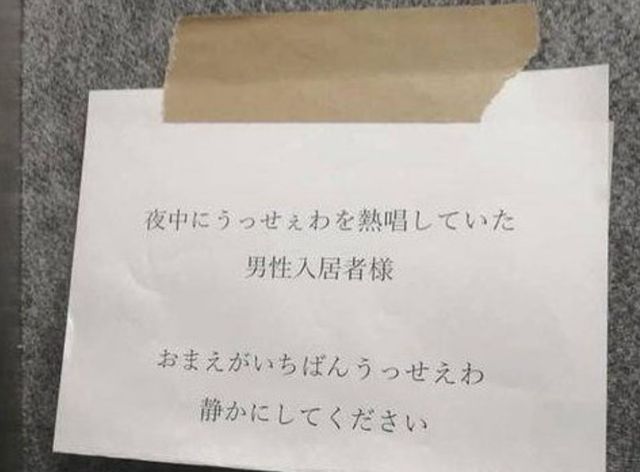 夜中にうっせぇわを熱唱していた
男性入居者様
おまえがいちばんうっせえわ
静かにしてください